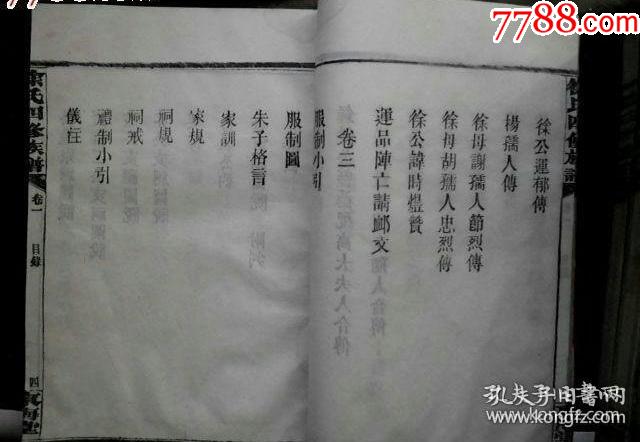 7788.com
徐氏四修族譜
徐公運郁傳
楊孺人傳
徐母謝孺人節烈傳
徐母胡孺人忠烈傳
徐公諱時燈贊
運品陣亡請卹文
卷三
服制小引
服制圖
朱子格言
家訓
家規
祠規
祠戒
禮制小引
儀注
徐氏四修族譜
卷一
目錄
四
孔夫子旧书网
kongfz.com